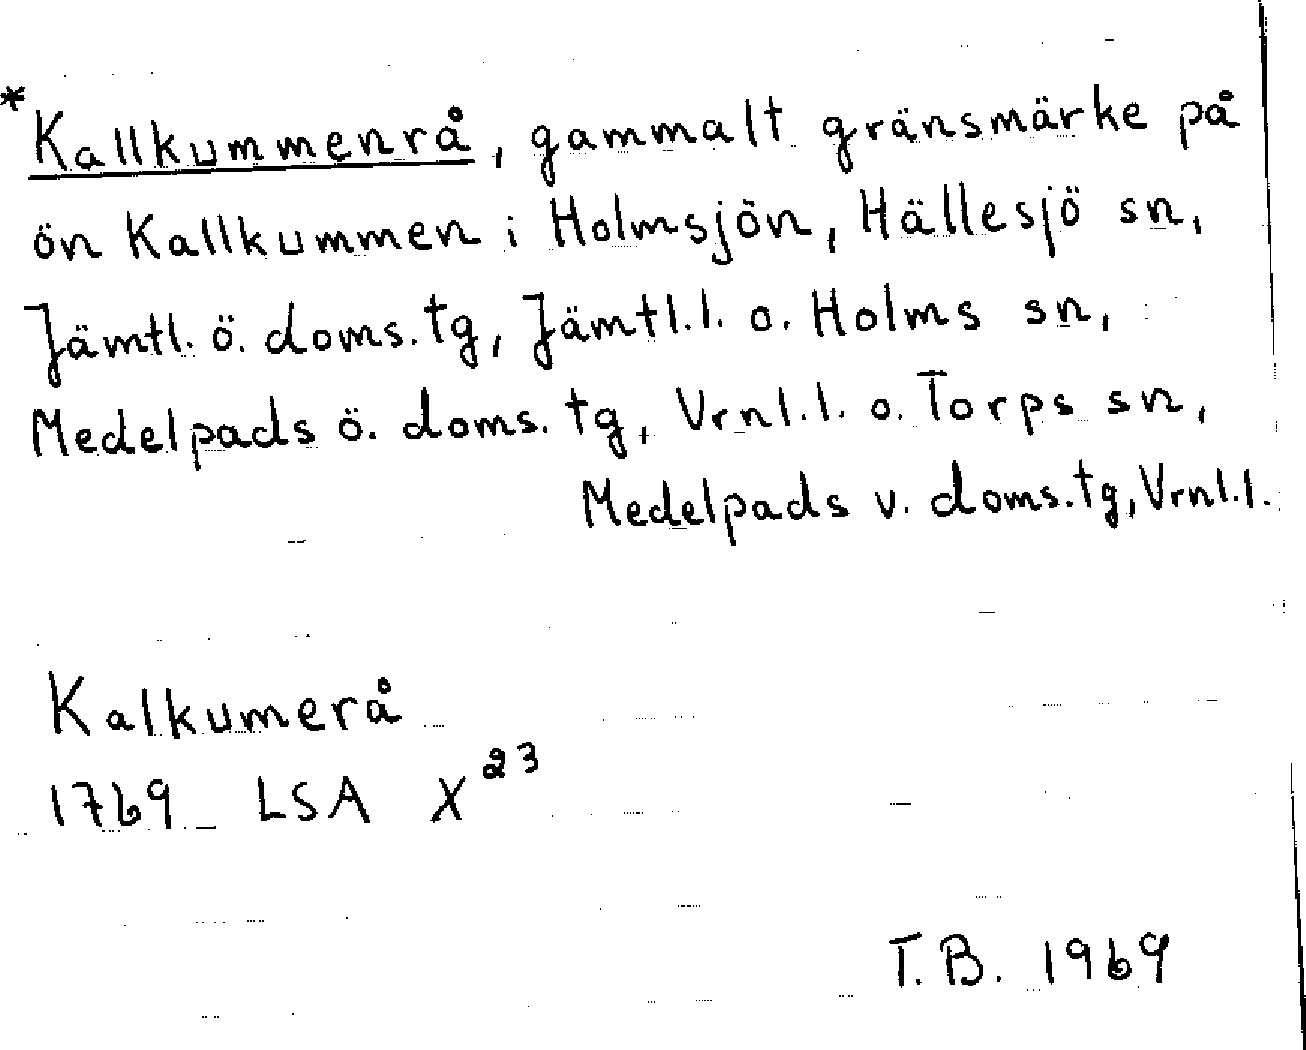 *Kallkummenrå, gammalt gränsmärke på
ön Kallkummen i Holmsjön, Hällesjö sn,
Jämtl. ö. doms. tg, Jämtl.l. o. Holms sn,
Medelpads ö. doms. tg, Vrnl.l. o. Torps sn,
Medelpads v. doms.tg, Vrnl.l.
Kalkumerå
1769 LSA X²³
T.B. 1969